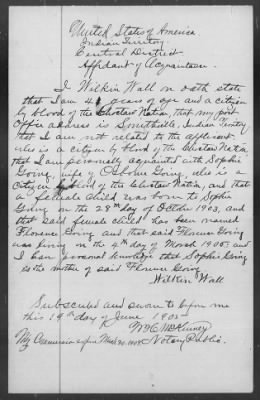 United States of America
Indian Territory
Central District
Affidavit of Acquaintance.
I Wilkin Wall on oath state
that I am 41 years of age and a citizen
by blood of the Choctaw Nation, that my post
office address is Smithville, Indian Territory
that I am not related to the applicant.
who is a citizen by blood of the Choctaw Nation
that I am personally acquainted with Sophie
Going, wife of Going, who is a
citizen by blood of the Choctaw Nation, and that
a female child was born to Sophie
Going on the 28th day of October 1903, and
that said female child has been named
Florence Going and that said Florence Going
was living on the 4th day of March 1905. and
I have personal knowledge that Sophie Going
is the mother of said Florence Going
Wilkin Wall
Subscribed and sworn to before me
this 19th day of June 1905
McKinney
My Commission expires Mar Notary Public.